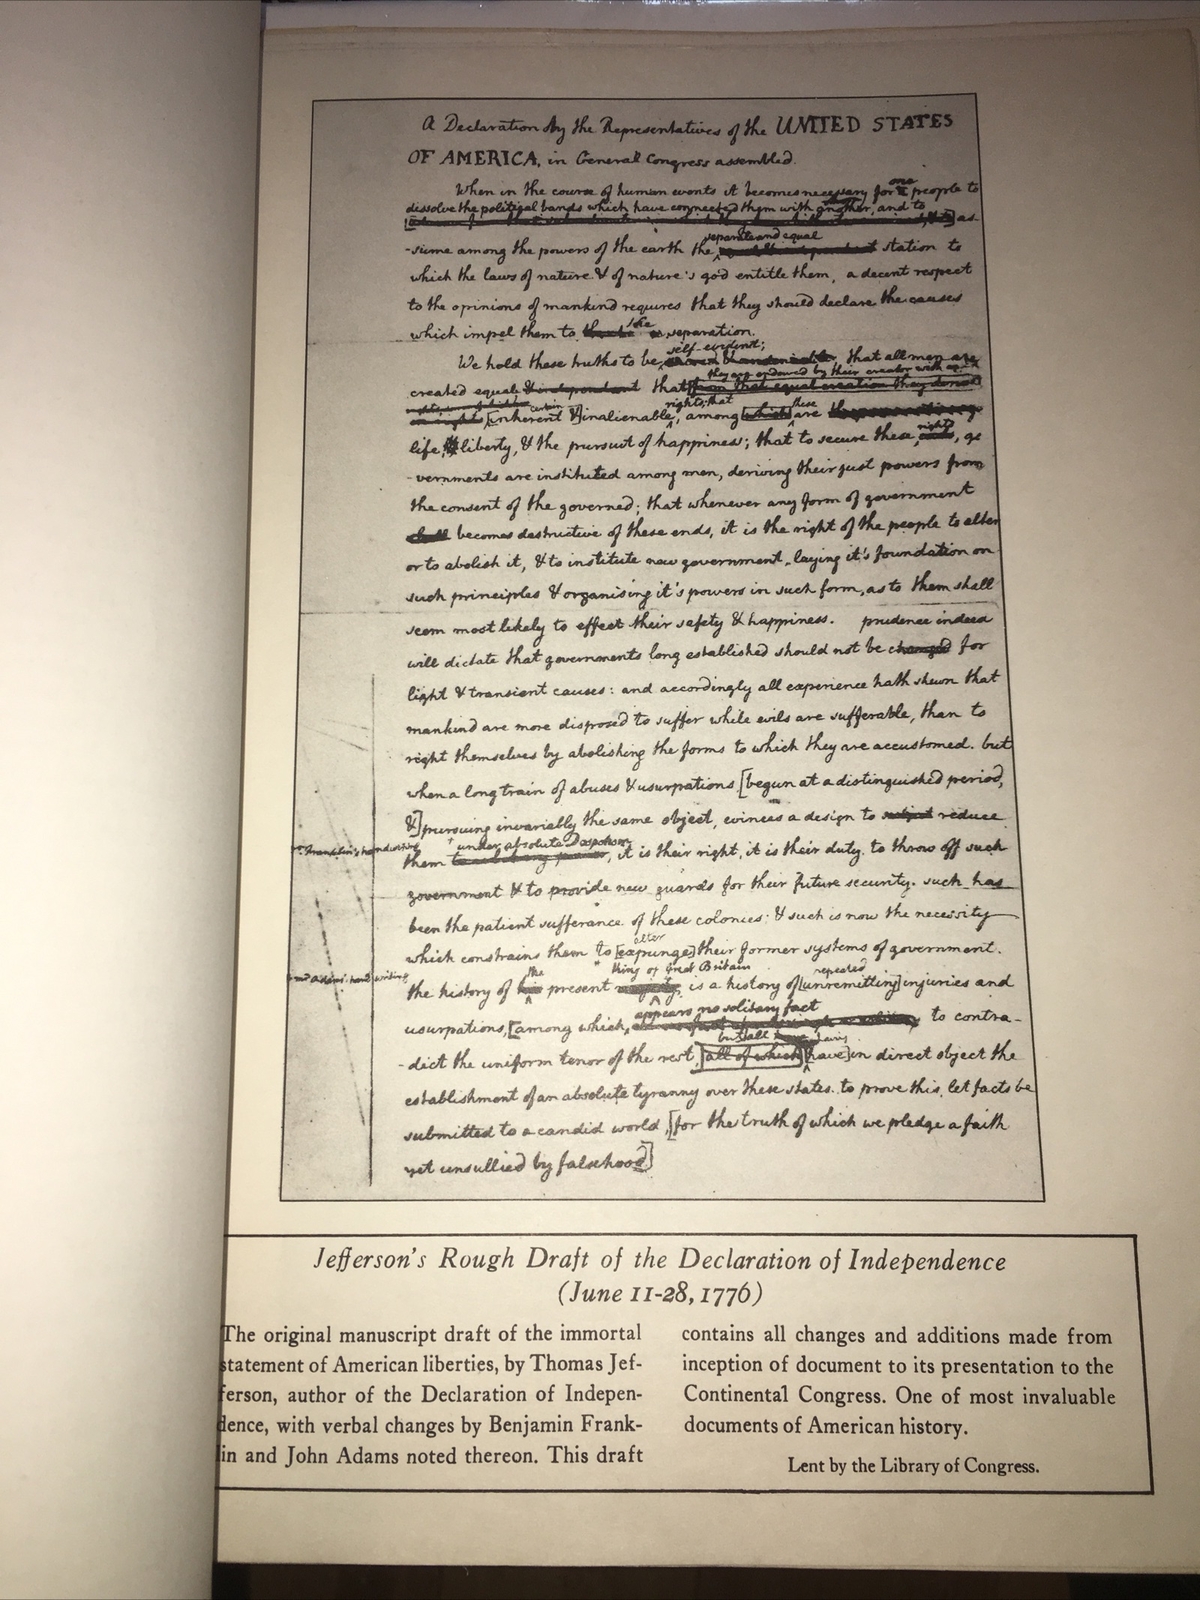 A Declaration by the Representatives of the UNITED STATES
OF AMERICA, in General Congress assembled.
one
When in the course of human events it becomes necessary for a people to
dissolve the political bands which have connected them with another, and to
as-
separate and equal
-sume among the powers of the earth the equal & independent station to
which the laws of nature & of nature's god entitle them, a decent respect
to the opinions of mankind requires that they should declare the causes
the
which impel them to separation.
self-evident;
We hold these truths to be sacred & undeniable, that all men are
they are endowed by their creator with
created equal & independent that from that equal creation they derive
certain rights; that these
[inherent & inalienable, among which are
rights
life, & liberty, & the pursuit of happiness; that to secure these ends, go
-vernments are instituted among men, deriving their just powers from
the consent of the governed; that whenever any form of government
shall becomes destructive of these ends, it is the right of the people to alter
or to abolish it, & to institute new government, laying it's foundation on
such principles & organising it's powers in such form, as to them shall
seem most likely to effect their safety & happiness. prudence indeed
will dictate that governments long established should not be changed for
light & transient causes: and accordingly all experience hath shewn that
mankind are more disposed to suffer while evils are sufferable, than to
right themselves by abolishing the forms to which they are accustomed. but
when a long train of abuses & usurpations, [begun at a distinguished period,
&] pursuing invariably the same object, evinces a design to subject reduce
Franklin's handwriting
under absolute Despotism
them to arbitrary power, it is their right, it is their duty, to throw off such
government & to provide new guards for their future security. such has
been the patient sufferance of these colonies; & such is now the necessity
alter
which constrains them to [expunge] their former systems of government.
Adams' handwriting
the king of Great Britain repeated
the history of his present majesty, is a history of [unremitting] injuries and
appears no solitary fact
usurpations, [among which, to contra-
but all have
-dict the uniform tenor of the rest, [all of which] [have] in direct object the
establishment of an absolute tyranny over these states. to prove this, let facts be
submitted to a candid world, [for the truth of which we pledge a faith
yet unsullied by falsehood]
Jefferson's Rough Draft of the Declaration of Independence
(June 11-28, 1776)
The original manuscript draft of the immortal
statement of American liberties, by Thomas Jef-
ferson, author of the Declaration of Indepen-
dence, with verbal changes by Benjamin Frank-
lin and John Adams noted thereon. This draft
contains all changes and additions made from
inception of document to its presentation to the
Continental Congress. One of most invaluable
documents of American history.
Lent by the Library of Congress.